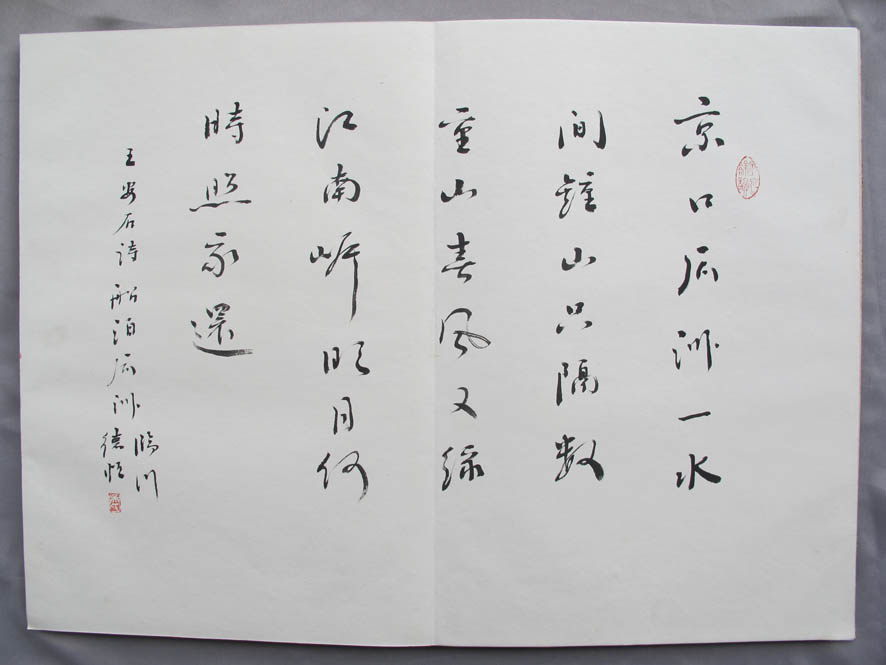 京口瓜洲一水
間鍾山只隔數
重山春風又綠
江南岸明月何
時照我還
王安石詩船泊瓜洲
臨川
德恆